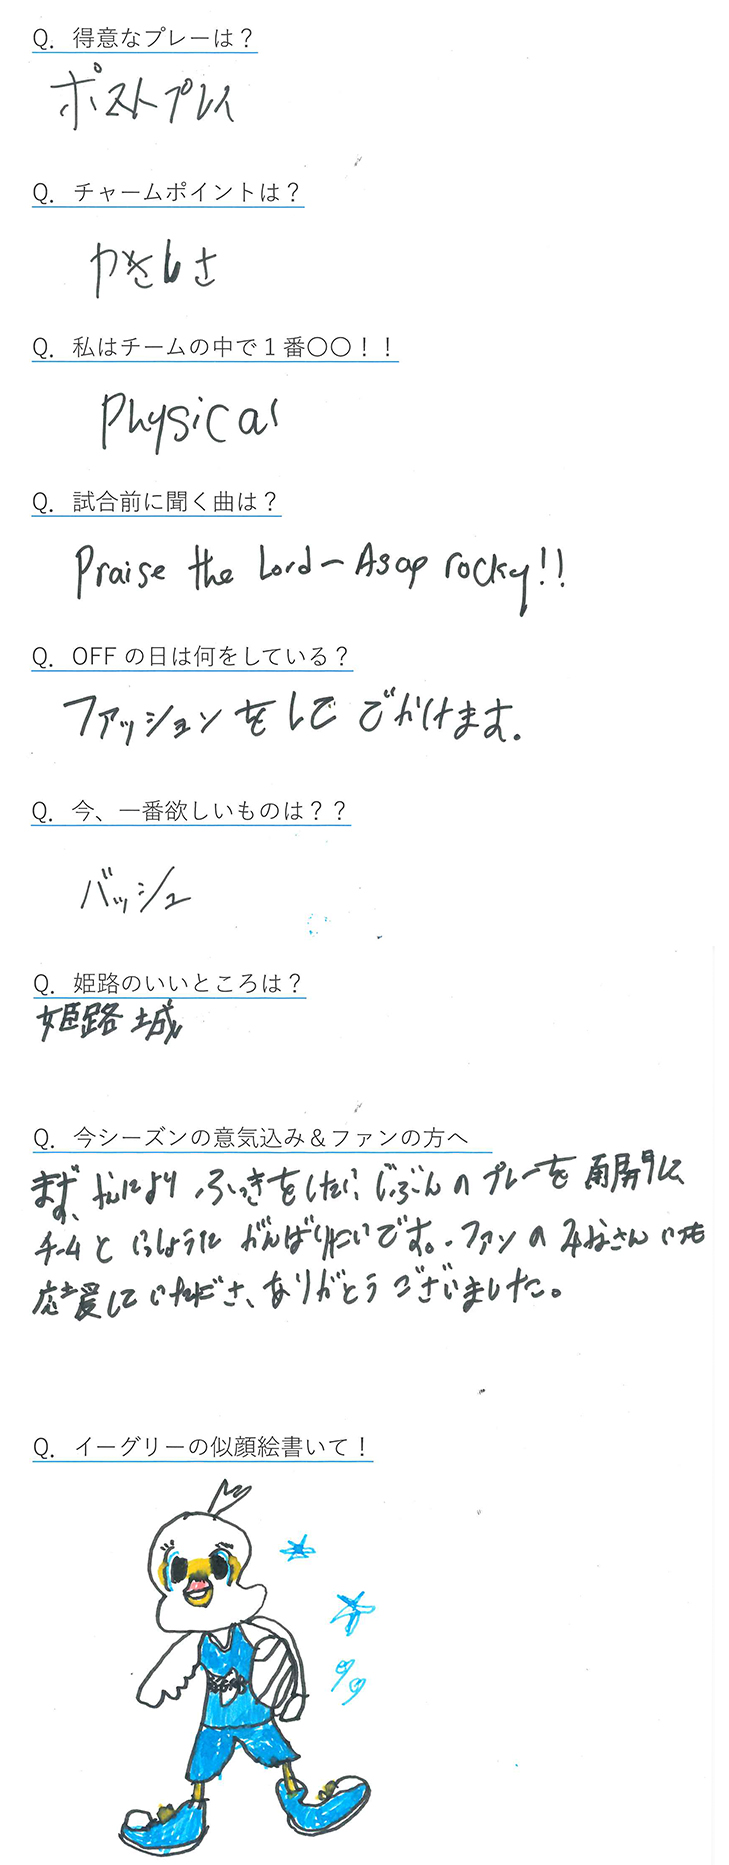 Q. 得意なプレーは？
ポストプレイ
Q. チャームポイントは？
やさしさ
Q. 私はチームの中で１番〇〇！！
Physical
Q. 試合前に聞く曲は？
Praise the Lord - Asap rocky!!
Q. OFF の日は何をしている？
ファッションをしてでかけます。
Q. 今、一番欲しいものは？？
バッシュ
Q. 姫路のいいところは？
姫路城
Q. 今シーズンの意気込み＆ファンの方へ
まず、なにより、ふっきをしたら、じぶんのプレーを再開し、
チームといっしょうにがんばりたいです。ファンのみなさんいつも
応援していただき、ありがとうございました。
Q. イーグリーの似顔絵書いて！